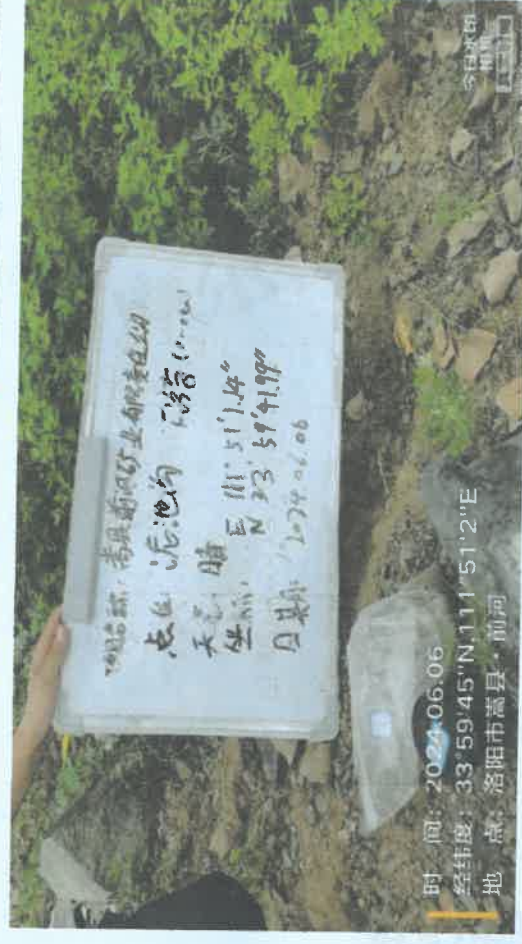 项目名称：嵩县前河矿业有限责任公司
点位：泥池沟下游
天气：晴
坐标：E 111°51'1.14"
N 33°59'41.99"
日期：2024.06.06
时 间：2024.06.06
经纬度：33°59'45"N,111°51'2"E
地 点：洛阳市嵩县·前河
今日水印
相机